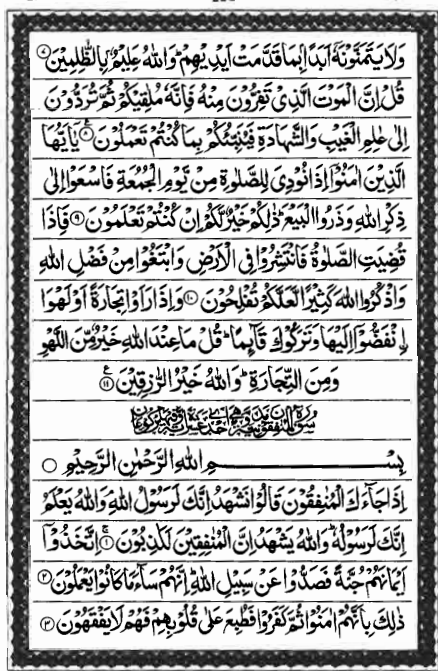 وَلَا يَتَمَنَّوْنَهٗۤ اَبَدًۢا بِمَا قَدَّمَتْ اَيْدِيْهِمْ ؕ وَاللّٰهُ عَلِيْمٌۢ بِالظّٰلِمِيْنَ ۷
قُلْ اِنَّ الْمَوْتَ الَّذِيْ تَفِرُّوْنَ مِنْهُ فَاِنَّهٗ مُلٰقِيْكُمْ ثُمَّ تُرَدُّوْنَ
اِلٰى عٰلِمِ الْغَيْبِ وَالشَّهَادَةِ فَيُنَبِّئُكُمْ بِمَا كُنْتُمْ تَعْمَلُوْنَ ۸ يٰۤاَيُّهَا
الَّذِيْنَ اٰمَنُوْۤا اِذَا نُوْدِيَ لِلصَّلٰوةِ مِنْ يَّوْمِ الْجُمُعَةِ فَاسْعَوْا اِلٰى
ذِكْرِ اللّٰهِ وَذَرُوا الْبَيْعَ ؕ ذٰلِكُمْ خَيْرٌ لَّكُمْ اِنْ كُنْتُمْ تَعْلَمُوْنَ ۹ فَاِذَا
قُضِيَتِ الصَّلٰوةُ فَانْتَشِرُوْا فِي الْاَرْضِ وَابْتَغُوْا مِنْ فَضْلِ اللّٰهِ
وَاذْكُرُوا اللّٰهَ كَثِيْرًا لَّعَلَّكُمْ تُفْلِحُوْنَ ۱۰ وَاِذَا رَاَوْا تِجَارَةً اَوْ لَهْوَا
اِۨنْفَضُّوْۤا اِلَيْهَا وَتَرَكُوْكَ قَآئِمًا ؕ قُلْ مَا عِنْدَ اللّٰهِ خَيْرٌ مِّنَ اللَّهْوِ
وَمِنَ التِّجَارَةِ ؕ وَاللّٰهُ خَيْرُ الرّٰزِقِيْنَ ۱۱
بِسْمِ اللّٰهِ الرَّحْمٰنِ الرَّحِيْمِ
اِذَا جَآءَكَ الْمُنٰفِقُوْنَ قَالُوْا نَشْهَدُ اِنَّكَ لَرَسُوْلُ اللّٰهِ ۘ وَاللّٰهُ يَعْلَمُ
اِنَّكَ لَرَسُوْلُهٗ ؕ وَاللّٰهُ يَشْهَدُ اِنَّ الْمُنٰفِقِيْنَ لَكٰذِبُوْنَ ۱ اِتَّخَذُوْۤا
اَيْمَانَهُمْ جُنَّةً فَصَدُّوْا عَنْ سَبِيْلِ اللّٰهِ ؕ اِنَّهُمْ سَآءَ مَا كَانُوْا يَعْمَلُوْنَ ۲
ذٰلِكَ بِاَنَّهُمْ اٰمَنُوْا ثُمَّ كَفَرُوْا فَطُبِعَ عَلٰى قُلُوْبِهِمْ فَهُمْ لَا يَفْقَهُوْنَ ۳